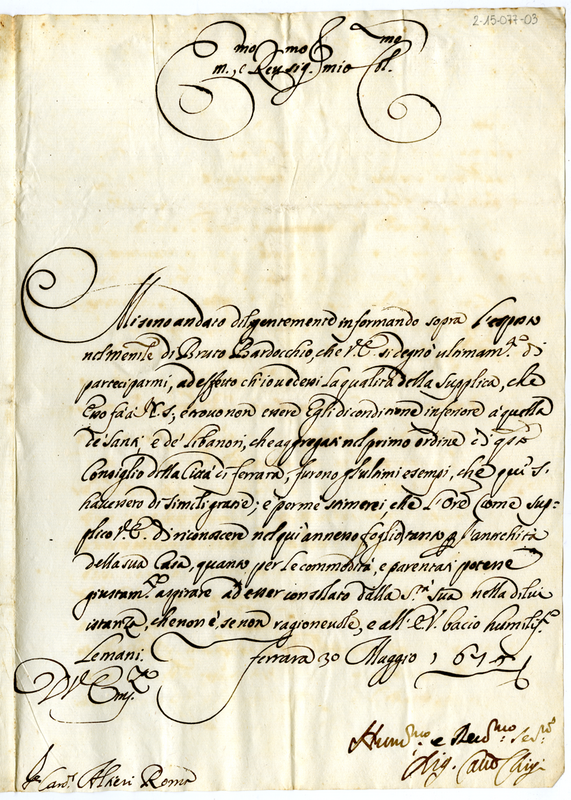 2-15-077-03
Em.mo e Rev.mo Sig. mio Col.mo
Mi sono andato diligentemente informando sopra l'esposto
nel memle di Bruto Bardocchio, che V.E. si degnò ultimam.te di
parteciparmi, ad effetto ch'io vedessi la qualità della supplica, che
Esso fà à N.S., e trovo non essere Egli di conditione inferiore à quella
de' Santi e de' Libanori, che aggregati nel primo ordine di q.sto
Consiglio della Città di ferrara, furono gl'ultimi esempi, che qui si
havessero di simili gratie; e per me stimerei, che l'Ore (come sup=
plico V.E. di riconoscere nel qui anneno foglio) tanto p l'antichità
della sua Casa, quanto per le commodità, e parentati potesse
giustam.te aspirare ad esser consolato dalla S.tà Sua nella di lui
istanza, che non è se non ragionevole, e all' E.V. bacio humiliss.e
le mani. ferrara 30 Maggio 167
Di V. Em.za
Humil.mo e Devot.mo Ser.re
Sig. Card. Altieri Roma
Sig. Card. Chigi